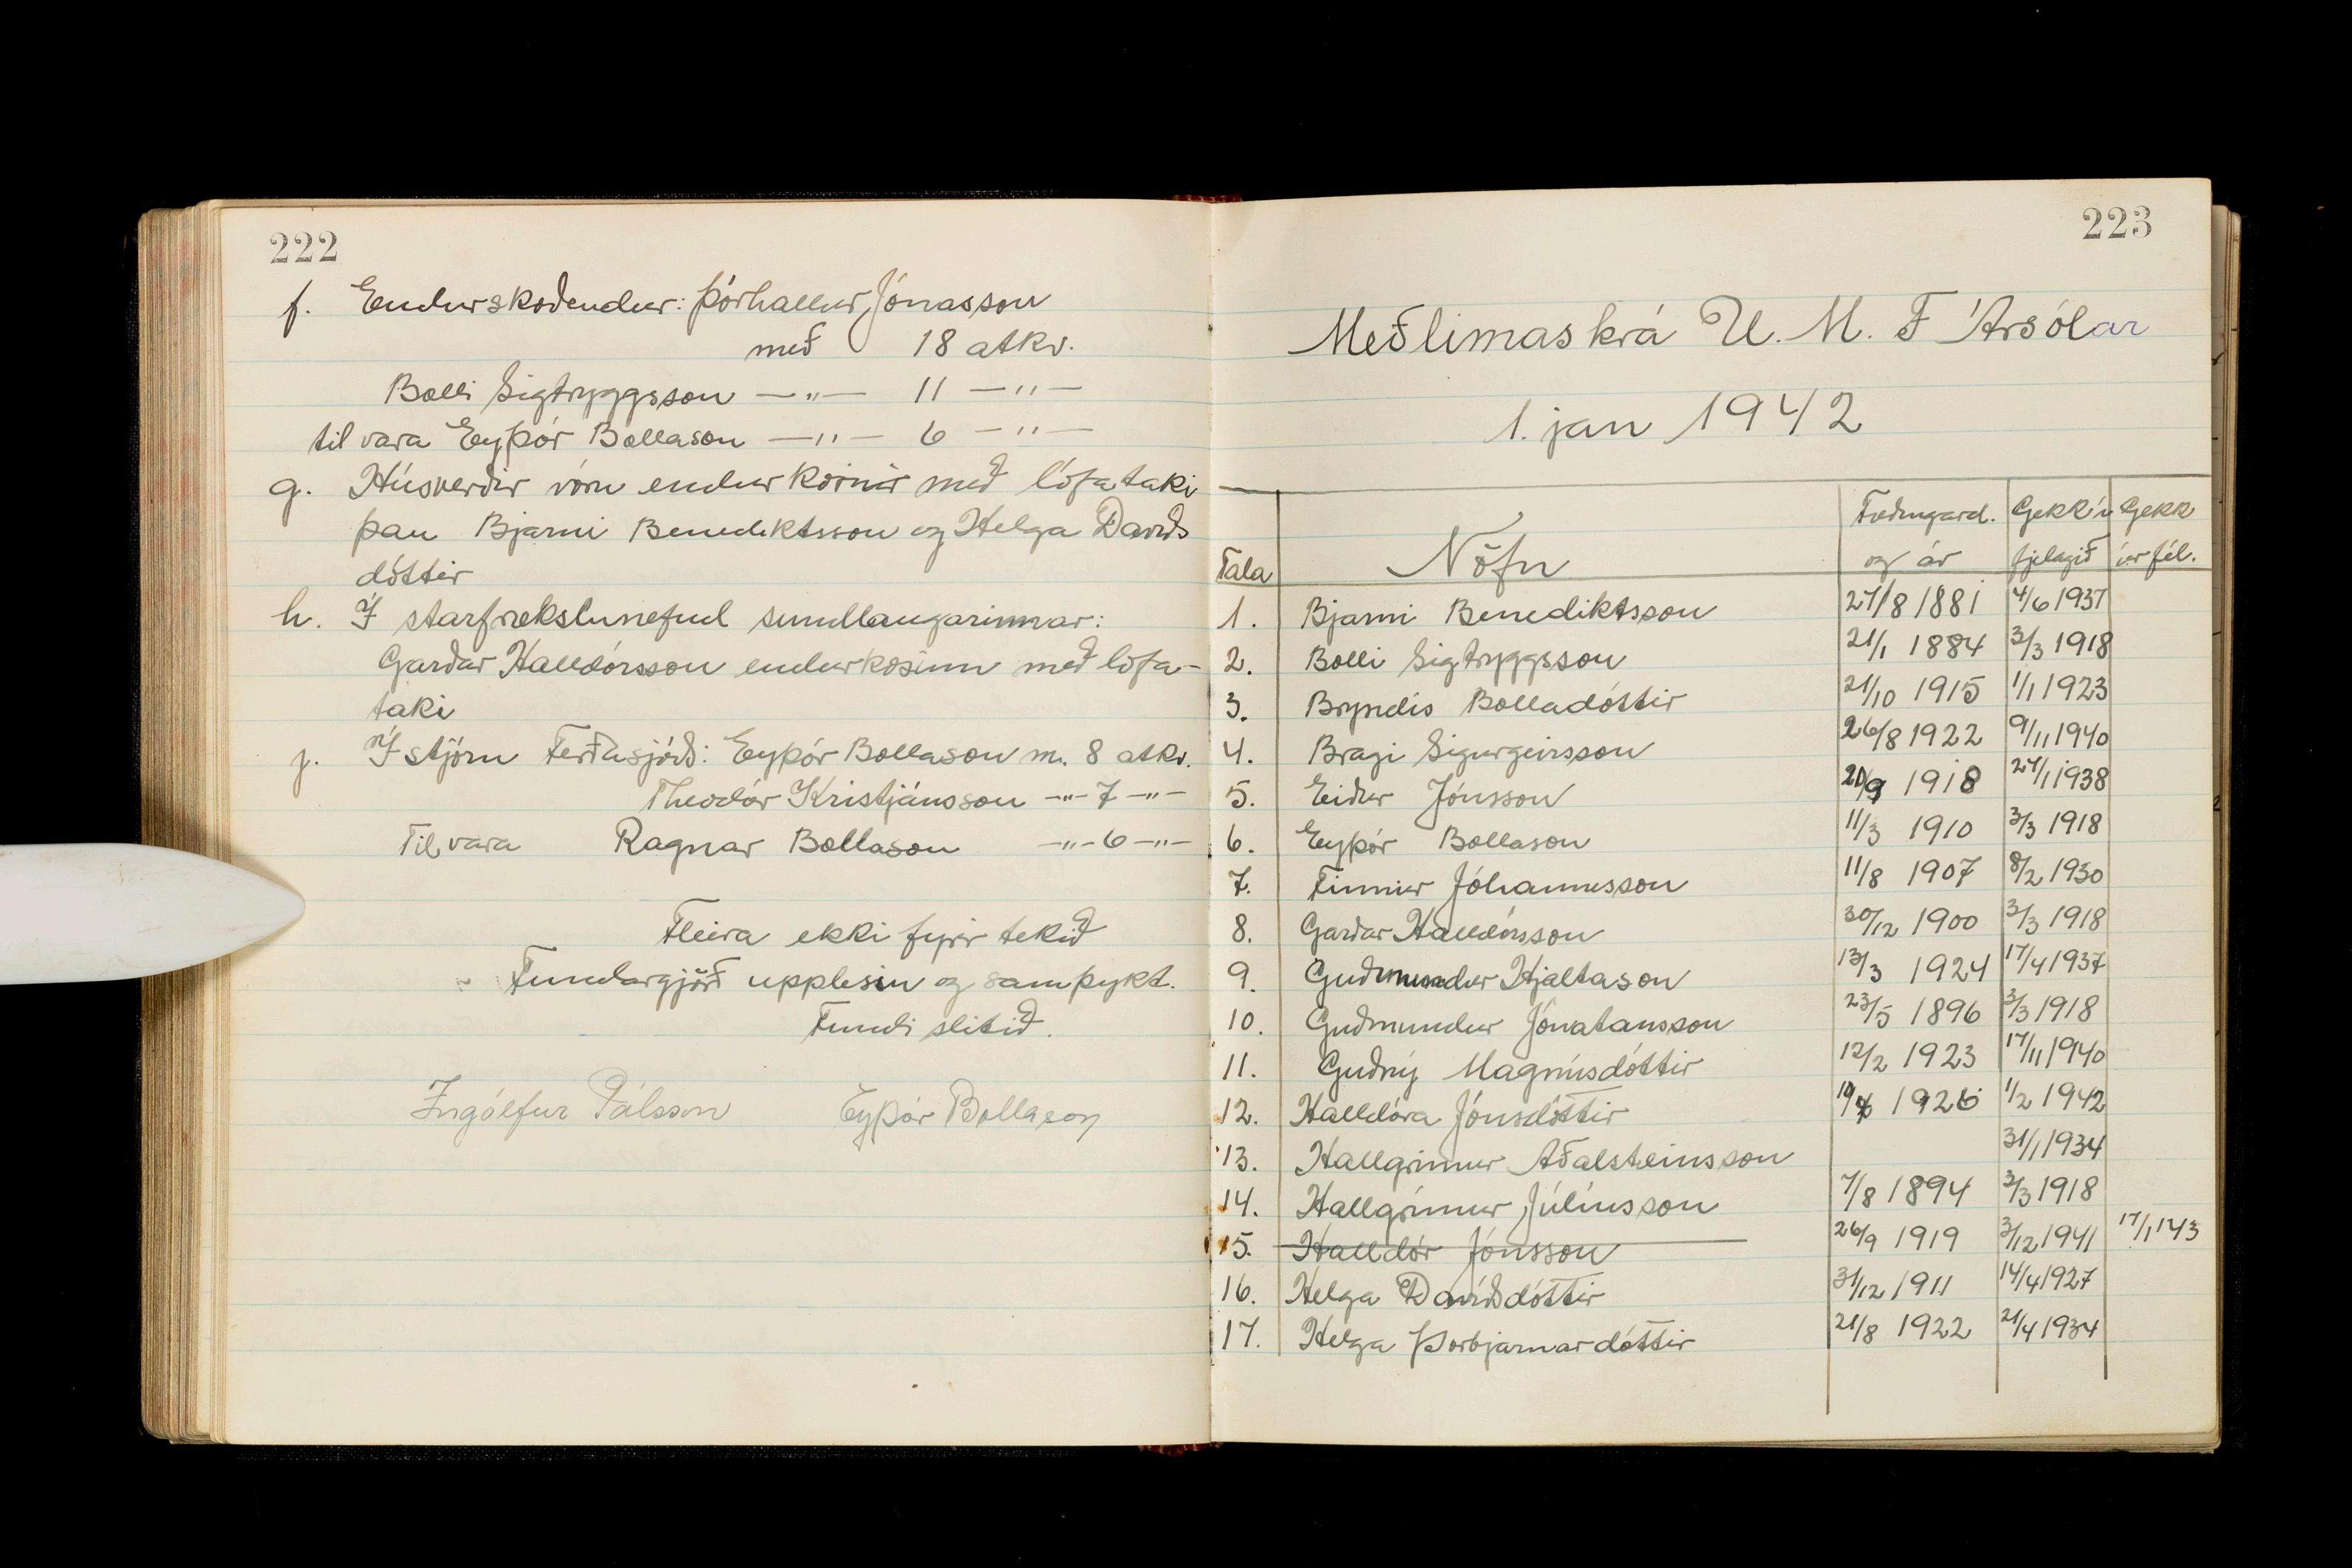 222
f. Endurskoðendur: Þórhallur Jónasson
með 18 atkv.
Bolli Sigtryggsson —„— 11 —„—
til vara Eyþór Bollason —„— 6 —„—
g. Húsverðir vóru endurkosnir með lófataki
þau Bjarni Benediktsson og Helga Davíðs
dóttir
h. Í starfrækslunefnd sundlaugarinnar:
Garðar Halldórsson endurkosinn með lófa-
taki
j. Í stjórn Ferðasjóðs: Eyþór Bollason m. 8 atkv.
Theodór Kristjánsson —„— 7 —„—
Til vara Ragnar Bollason —„— 6 —„—
Fleira ekki fyrir tekið
Fundargjörð upplesin og samþykt.
Fundi slitið.
Ingólfur Pálsson Eyþór Bollason
223
Meðlimaskrá U. M. F Ársólar
1. jan 1942
Tala Nöfn Fæðingard. og ár Gekk í fjelagið Gekk úr fél.
1. Bjarni Benediktsson 27/8 1881 4/6 1937
2. Bolli Sigtryggsson 21/1 1884 3/3 1918
3. Bryndís Bolladóttir 21/10 1915 1/1 1923
4. Bragi Sigurgeirsson 26/8 1922 9/11 1940
5. Eiður Jónsson 20/9 1918 27/1 1938
6. Eyþór Bollason 11/3 1910 3/3 1918
7. Finnur Jóhannesson 11/8 1907 8/2 1930
8. Garðar Halldórsson 30/12 1900 3/3 1918
9. Guðmundur Hjaltason 13/3 1924 17/4 1937
10. Guðmundur Jónatansson 23/5 1896 3/3 1918
11. Guðný Magnúsdóttir 12/2 1923 17/11 1940
12. Halldóra Jónsdóttir 1926 1/2 1942
13. Hallgrímur Aðalsteinsson 31/1 1934
14. Hallgrímur Júlíusson 7/8 1894 3/3 1918
15. Halldór Jónsson 26/9 1919 3/12 1941 17/1 143
16. Helga Davíðsdóttir 31/12 1911 14/4 1927
17. Helga Þorbjarnardóttir 21/8 1922 21/4 1934